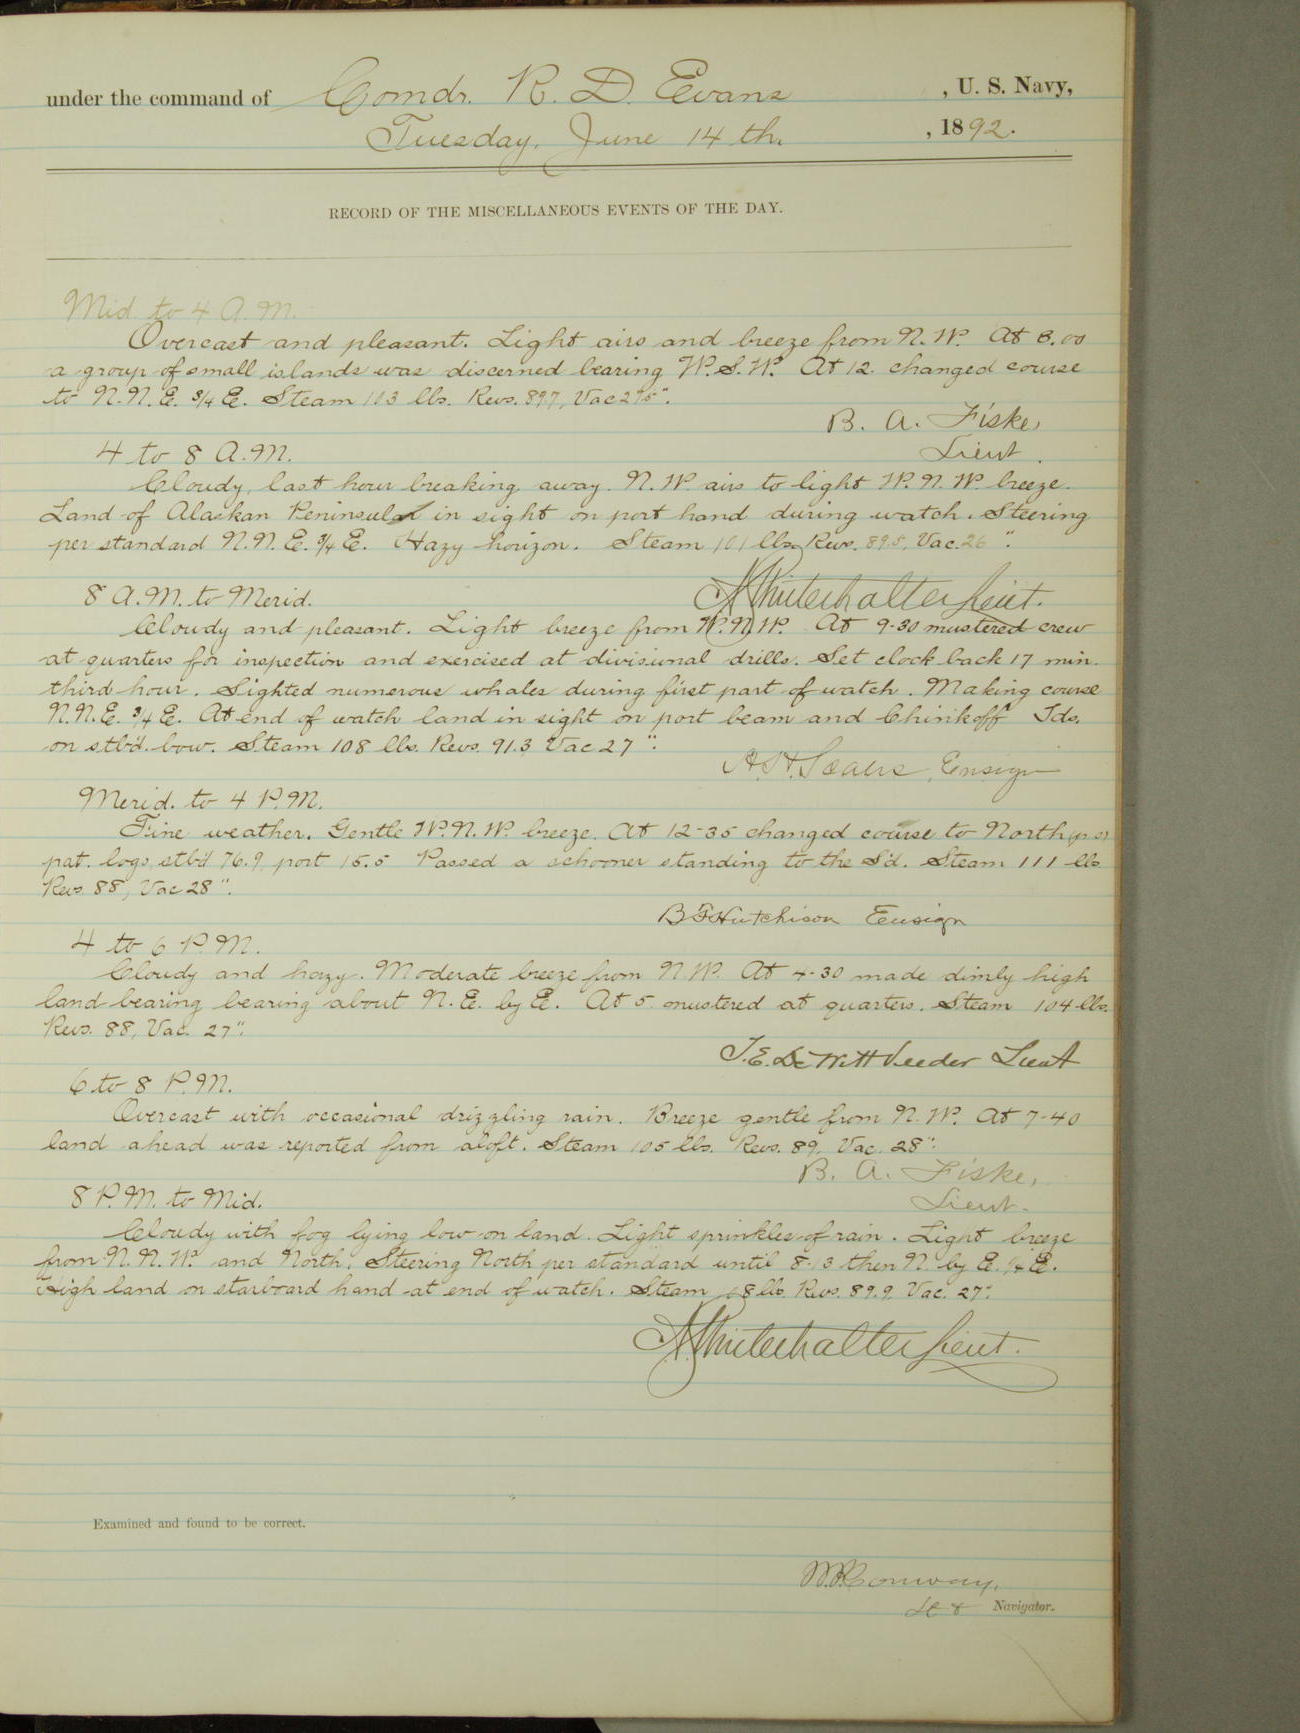 under the command of Comdr. R. D. Evans , U. S. Navy,
Tuesday, June 14 th. , 1892.
RECORD OF THE MISCELLANEOUS EVENTS OF THE DAY.
Mid. to 4 A.M.
Overcast and pleasant. Light airs and breeze from N.W. At 3.00
a group of small islands was discerned bearing W.S.W. At 12 changed course
to N.N.E. 3/4 E. Steam 103 lbs. Revs. 89.7, Vac 27.5".
B. A. Fiske,
Lieut.
4 to 8 A.M.
Cloudy, last hour breaking away. N.W. airs to light W.N.W. breeze.
Land of Alaskan Peninsula in sight on port hand during watch. Steering
per standard N.N.E. 3/4 E. Hazy horizon. Steam 101 lbs. Revs. 89.8, Vac. 26".
A Winterhalter Lieut.
8 A.M. to Merid.
Cloudy and pleasant. Light breeze from W.N.W. At 9-30 mustered crew
at quarters for inspection and exercised at divisional drills. Set clock back 17 min.
third hour. Sighted numerous whales during first part of watch. Making course
N.N.E. 3/4 E. At end of watch land in sight on port beam and Chirikoff Ids.
on stb'd. bow. Steam 108 lbs. Revs. 91.3, Vac 27".
Ensign
Merid. to 4 P.M.
Fine weather. Gentle W.N.W. breeze. At 12-35 changed course to North (p.s.)
pat. logs, stb'd 76.9, port 15.5 Passed a schooner standing to the S'd. Steam 111 lbs
Revs 88, Vac 28".
B F Hutchison Ensign
4 to 6 P.M.
Cloudy and hazy. Moderate breeze from N.W. At 4-30 made dimly high
land bearing bearing about N.E. by E. At 5 mustered at quarters. Steam 104 lbs.
Revs. 88, Vac. 27".
T.E. DeWitt Veeder Lieut
6 to 8 P.M.
Overcast with occasional drizzling rain. Breeze gentle from N.W. At 7-40
land ahead was reported from aloft. Steam 105 lbs. Revs. 89. Vac. 28".
B. A. Fiske,
Lieut.
8 P.M. to Mid.
Cloudy with fog lying low on land. Light sprinkles of rain. Light breeze
from N.N.W. and North. Steering North per standard until 8-13 then N. by E. 1/4 E.
High land on starboard hand at end of watch. Steam lbs. Revs. 89.9, Vac. 27".
A Winterhalter Lieut.
Examined and found to be correct.
Conway,
Navigator.